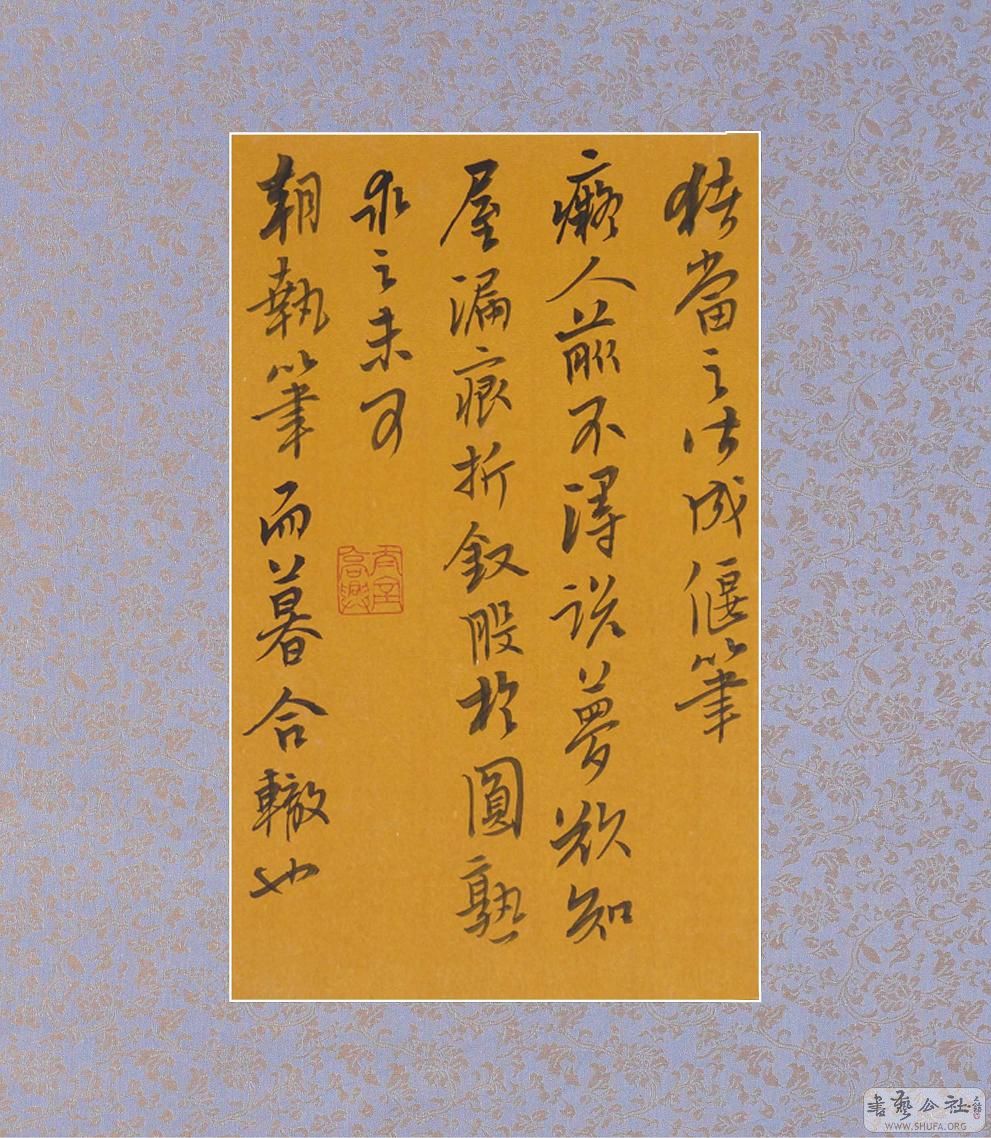 猪當之皆成偃筆
癡人前不得說夢欲知
屋漏痕折釵股於圓熟
求之未可
朝執筆而暮合轍也
書藝公社
WWW.SHUFA.ORG